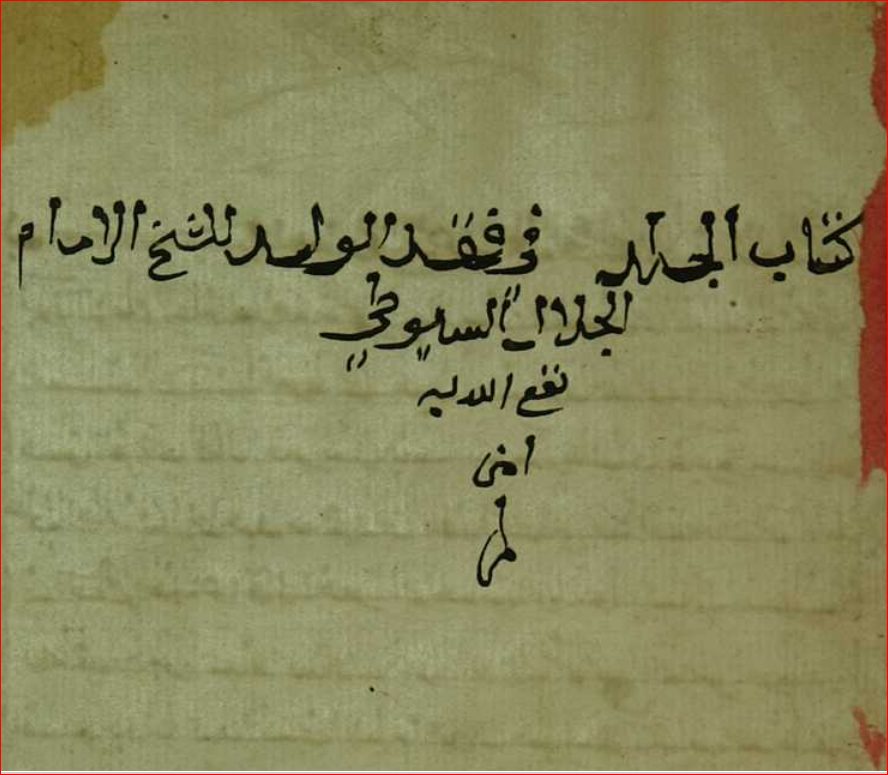 كتاب الجلد في فقد الولد للشيخ الامام
الجلال السيوطي
نفع الله به
امين